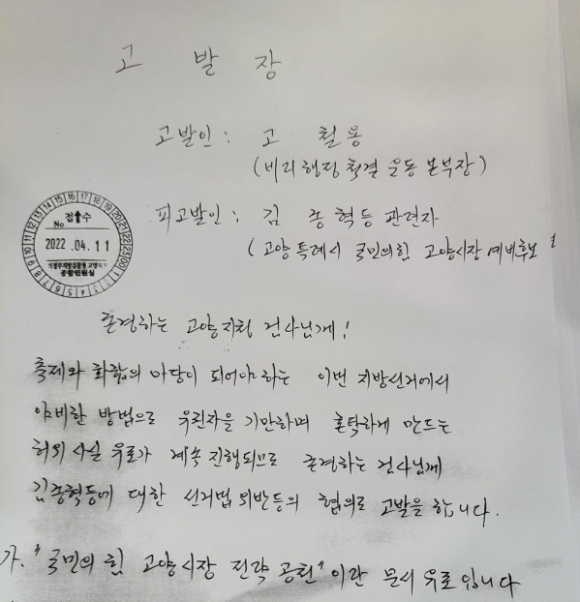 고 발 장
고발인 : 고 철용
(비리행정 척결 운동 본부장)
피고발인 : 김 종혁등 관련자
(고양 특례시 국민의힘 고양시장 예비후보
접수
No
2022 .04. 11
종합민원실
존경하는 고양지청 검사님께!
축제와 화합의 마당이 되어야 하는 이번 지방선거에서
야비한 방법으로 유권자을 기만하며 혼탁하게 만드는
허위 사실 유포가 계속 진행되므로 존경하는 검사님께
김종혁등에 대한 선거법 위반등의 혐의로 고발을 합니다.
가. "국민의 힘 고양시장 전략 공천" 이란 문서 유포 입니다